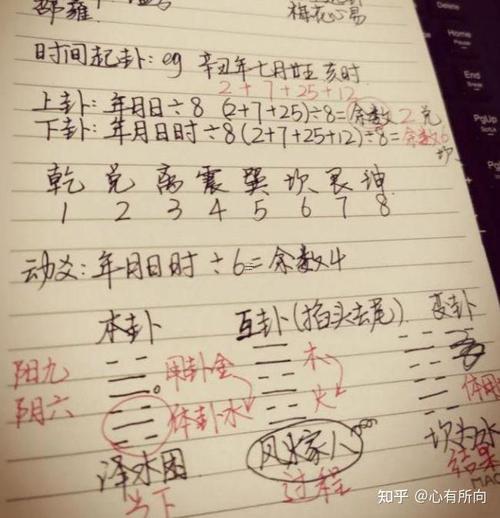 邵雍
梅花心易
Home
PgUp
PgDn
时间起卦:eg 辛丑年七月廿五 亥时
2+7+25+12
上卦:年月日÷8 (2+7+25)÷8=余数2兑
下卦:年月日时÷8(2+7+25+12)÷8=余数6
坎
乾 兑 离 震 巽 坎 艮 坤
1 2 3 4 5 6 7 8
动爻:年月日时÷6=余数4
本卦 互卦(掐头去尾) 变卦
阳九 用卦金 木
阴六 体卦水 火 体用
泽水困 风火家人 坎为水
当下 过程 结果
知乎 @心有所向